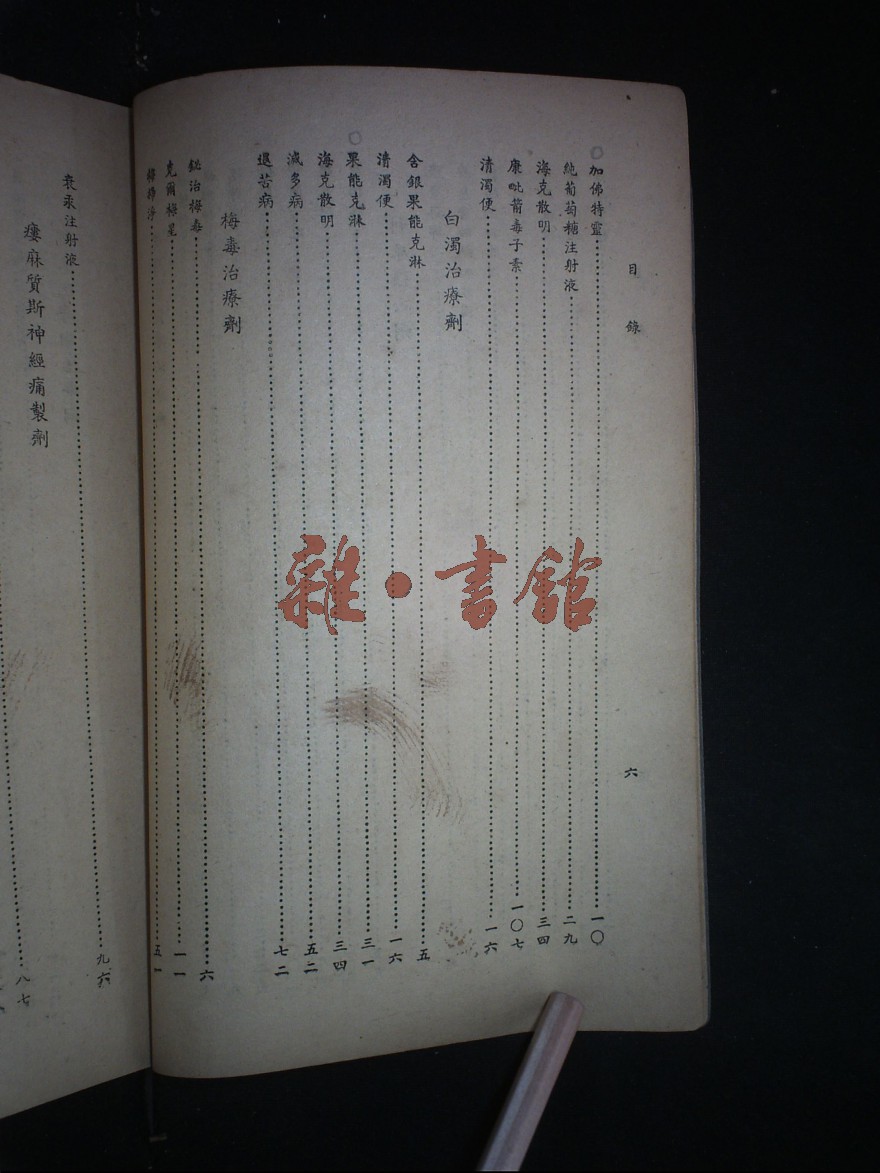 目錄 六
加佛特靈 一〇
純葡萄糖注射液 二九
海克散明 三四
康毗箭毒子素 一〇七
清濁便 一六
白濁治療劑
含銀果能克淋 五
清濁便 一六
果能克淋 三一
海克散明 三四
滅多病 五二
退苦病 七二
梅毒治療劑
鉍治梅毒 六
克爾梅星 一一
五一
衰汞注射液 九六
僂麻質斯神經痛製劑
八七
雜·書館